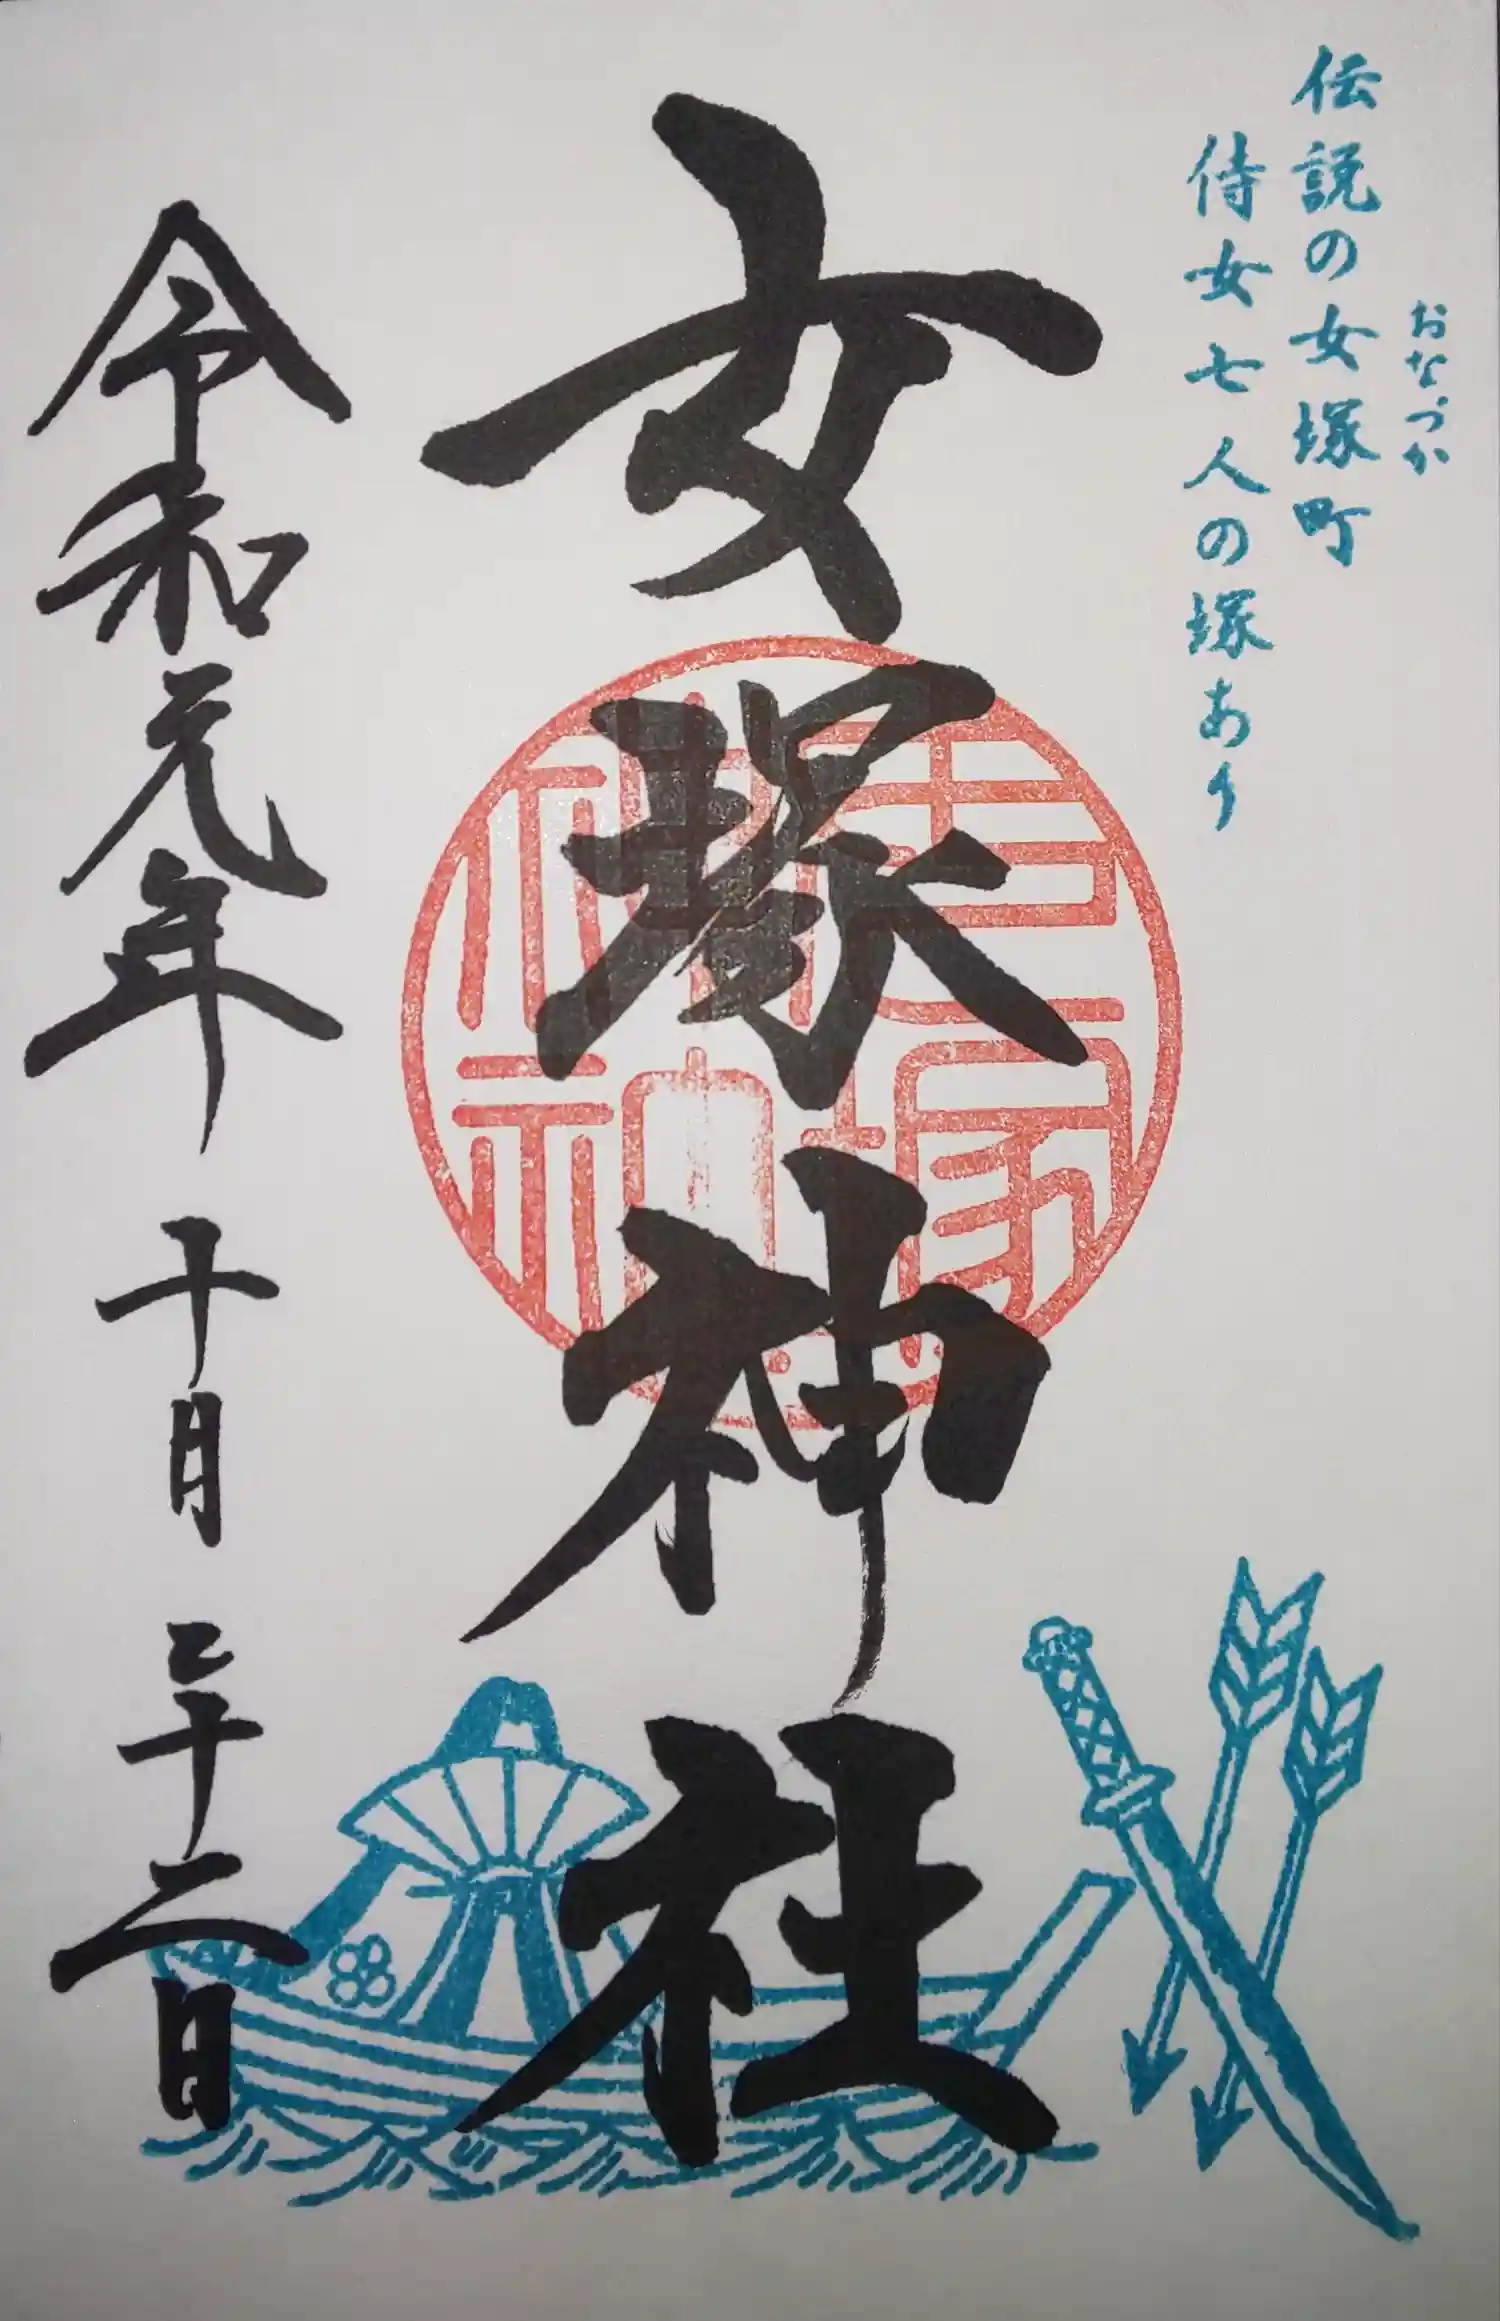 おなづか
伝説の女塚町
侍女七人の塚あり
女塚神社
令和元年 十月 二十二日